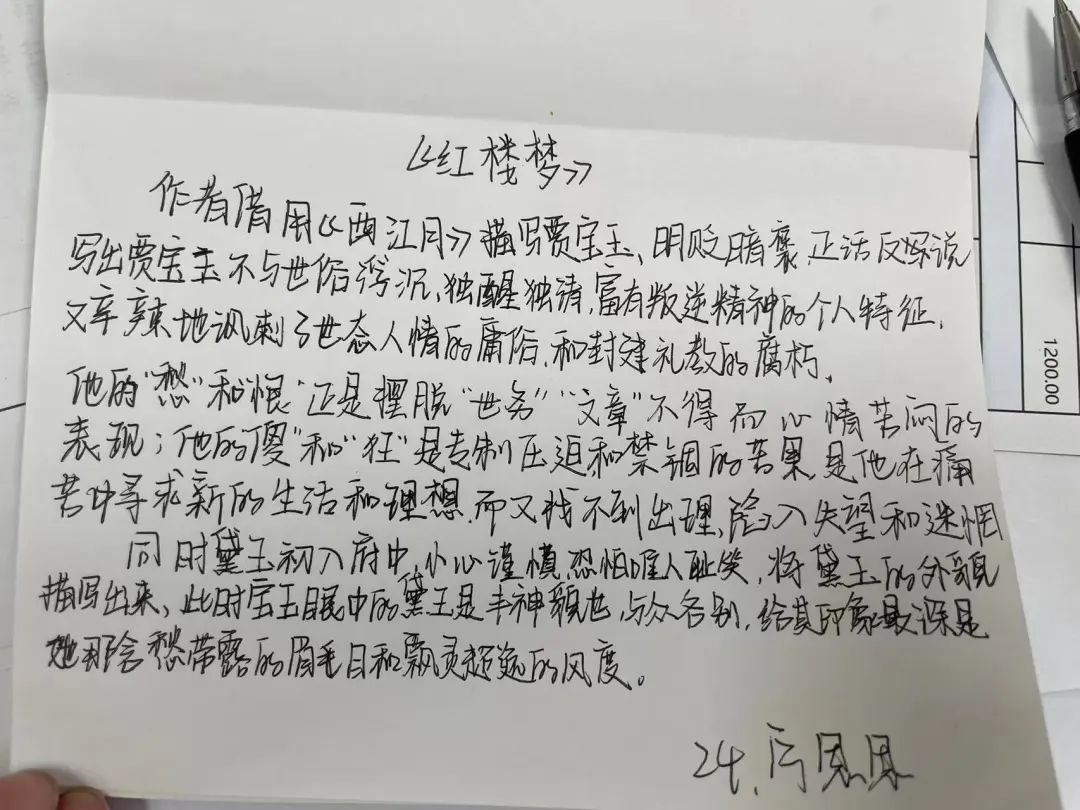 《红楼梦》
作者借用《西江月》描写贾宝玉、明贬暗褒,正话反写说
写出贾宝玉不与世俗浮沉、独醒独清,富有叛逆精神的个人特征,
又辛辣地讽刺了世态人情的庸俗、和封建礼教的腐朽,
他的"愁"和"恨"还是摆脱"世务""文章"不得而心情苦闷的
表现;他的"傻"和"狂"是专制压迫和禁锢的苦果,是他在痛
苦中寻求新的生活和理想,而又找不到出理,陷入失望和迷惘
同时黛玉初入府中,小心谨慎,恐怕唯人耻笑,将黛玉的外貌
描写出来,此时宝玉眼中的黛玉是丰神貌也,与众各别,给其印象最深是
她那含愁带露的眉毛目和飘灵超逸的风度。
24,
1200.00